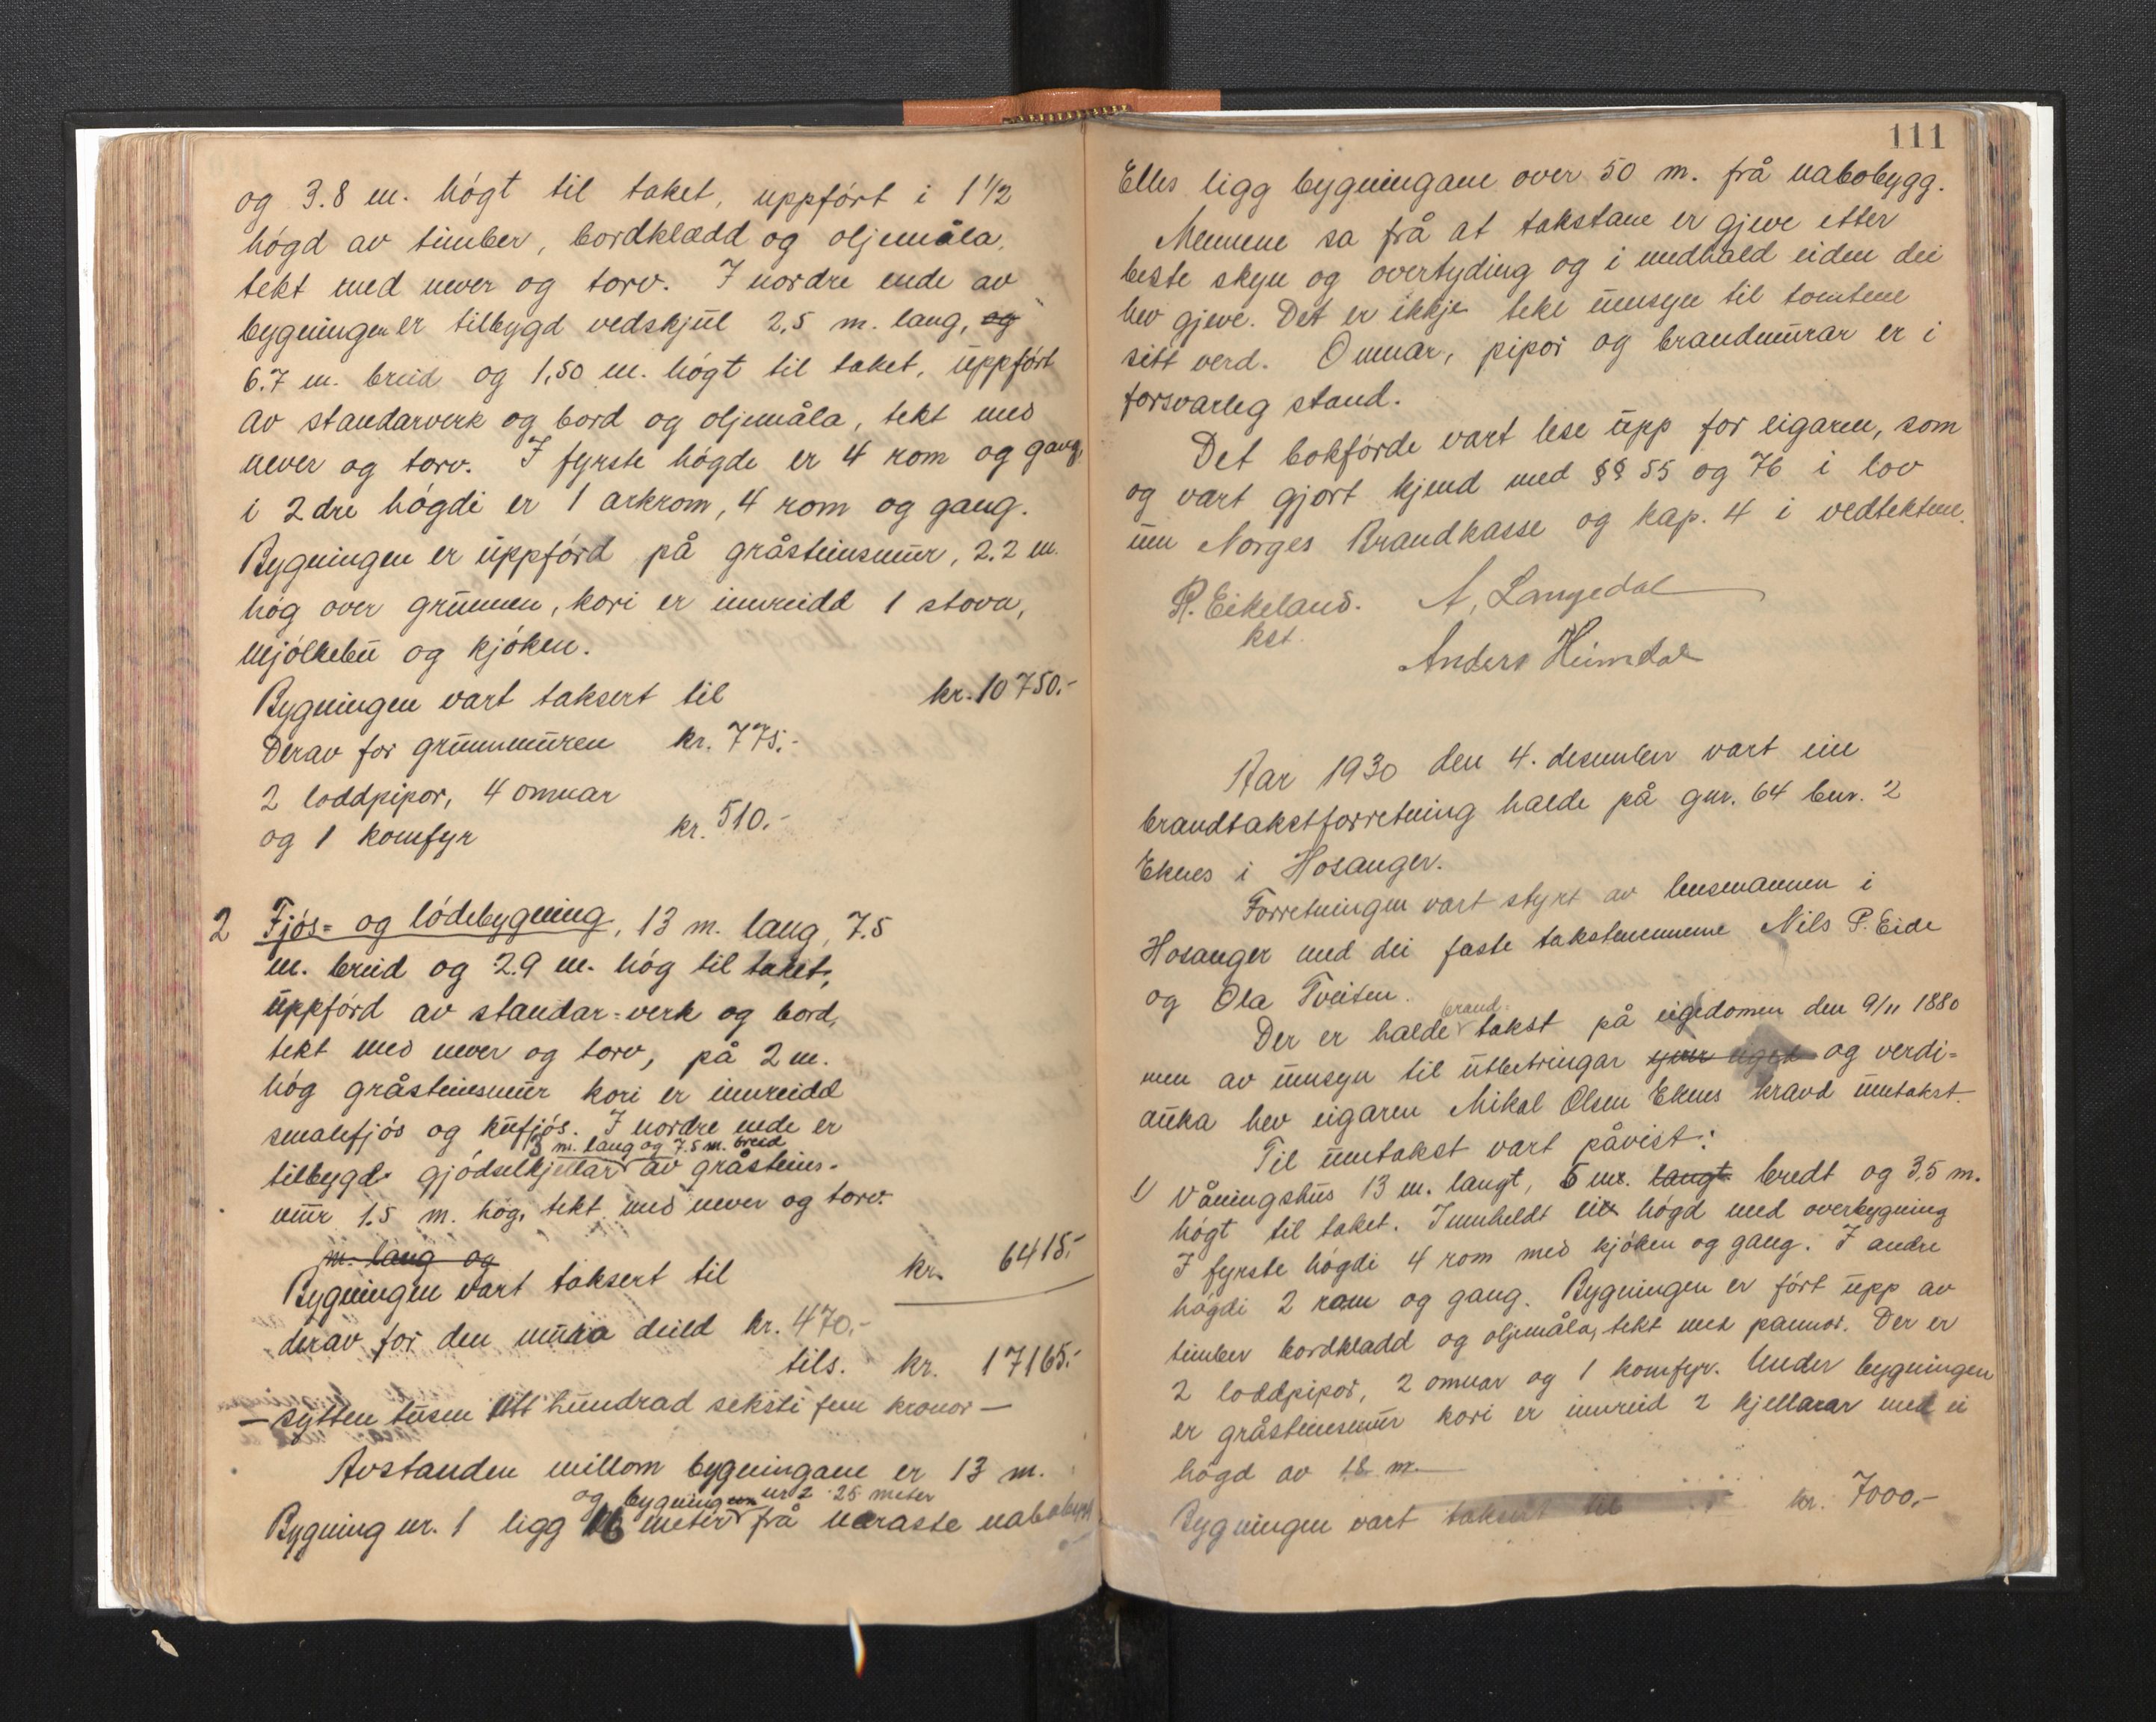 og 3.8 m. högt til taket, uppfört i 1 1/2
högd av timber, bordklædd og oljemåla,
tekt med never og torv. I nordre ende av
bygningen er tilbygd vedskjul 2,5 m. lang, og
6.7 m. breid og 1,50 m. högt til taket, uppfört
av standarverk og bord og oljemåla, tekt med
never og torv. I fyrste högde er 4 rom og gang,
i 2dre högdi er 1 arkrom, 4 rom og gang.
Bygningen er uppförd på gråsteinsmur, 2.2 m.
hög over grunnen, kori er innreidd 1 stova,
mjölkebu og kjöken.
Bygningen vart taksert til kr. 10750.-
Derav for grunnmuren kr. 775.-
2 loddpipor, 4 omnar
og 1 komfyr kr. 510.-
2 Fjös= og lödebygning, 13 m. lang, 7.5
m. breid og 2.9 m. hög til taket,
uppförd av standar=verk og bord,
tekt med never og torv, på 2 m.
hög gråsteinsmur kori er innreidd
smalefjös og kufjös. I nordre ende er
3 m. lang og 7.5 m. breid
tilbygd gjödselkjellar av gråsteins-
mur 1.5 m. hög, tekt med never og torv.
m. lang og
Bygningen vart taksert til kr. 6415.-
derav for den mura deild kr. 470.-
tils. kr. 17165.-
— sytten tusen eitt hundrad seksti fem kronor —
Avstanden millom bygningane er 13 m.
og bygningen nr 2 25 meter
Bygning nr. 1 ligg 16 meter frå næraste nabobygg
111
Elles ligg bygningane over 50 m. frå nabobygg.
Mennene sa frå at takstane er gjeve etter
beste skyn og overtyding og i medhald eiden dei
hev gjeve. Det er ikkje teke umsyn til tomtene
sitt verd. Omnar, pipor og brandmurar er i
forsvarleg stand.
Det bokförde vart lese upp for eigaren, som
og vart gjort kjend med §§ 55 og 76 i lov
um Norges Brandkasse og kap. 4 i vedtektene.
R. Eikeland. A. Langedal
kst.
Anders Heimdal
Aar 1930 den 4. desember vart ein
brandtakstforretning halde på gnr. 64 bnr. 2
Eknes i Hosanger.
Forretningen vart styrt av lensmannen i
Hosanger med dei faste takstmennene Nils P. Eide
og Ola Tveiten.
brand=
Der er halde takst på eigedomen den 9/11 1880
men av umsyn til utbetringar og verdi=
auka hev eigaren Mikal Olsen Eknes kravd umtakst.
Til umtakst vart påvist:
1) Våningshus 13 m. langt, 6 m. langt bredt og 3,5 m.
högt til taket. Innheldt ein högd med overbygning
I fyrste högdi 4 rom med kjöken og gang. I andre
högdi 2 rom og gang. Bygningen er fört upp av
timber bordkladd og oljemåla, tekt med pannor. Der er
2 loddpipor, 2 omnar og 1 komfyr. Under bygningen
er gråsteinsmur kori er innreid 2 kjellarar med ei
högd av 1.8 m.
Bygningen vart taksert til kr. 7000,-